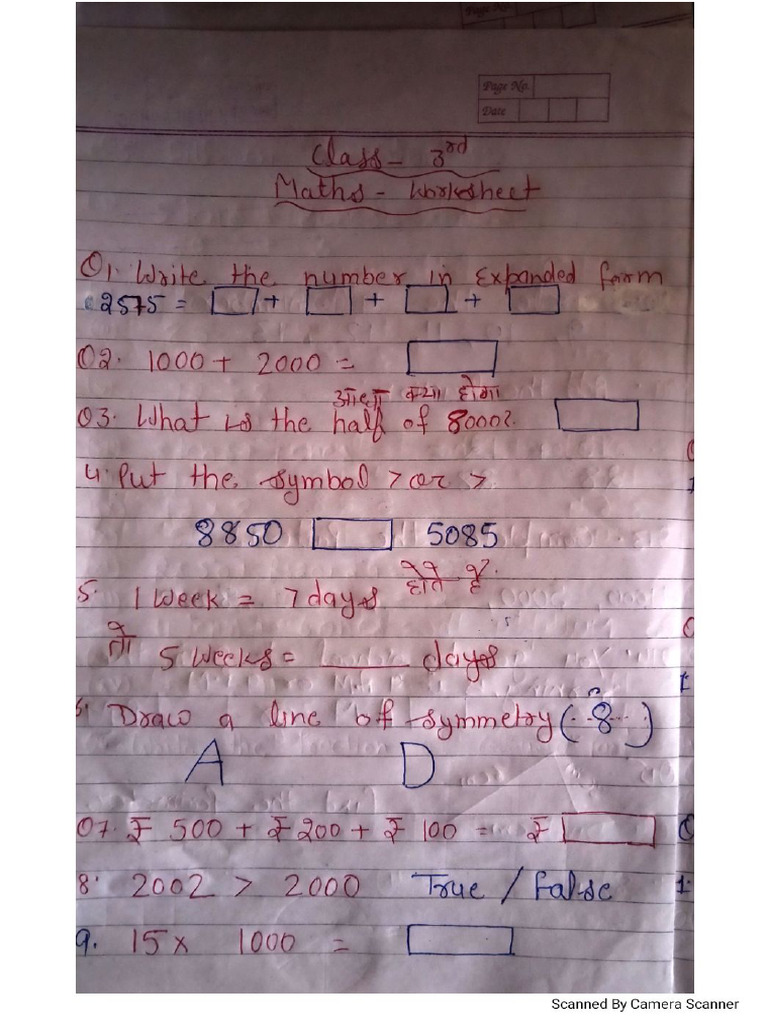 Page No.
Page No.
Date
Class - 3rd
Maths - Worksheet
Q1. Write the number in Expanded form
2575 = + + +
Q2. 1000 + 2000 =
आधा क्या होगा
Q3. What is the half of 8000?
4. Put the symbol > or >
8850 5085
5. 1 Week = 7 days होते है.
तो 5 Weeks = ____ days
6. Draw a line of symmetry (--8--)
A D
Q7. ₹ 500 + ₹ 200 + ₹ 100 = ₹
8. 2002 > 2000 True / False
9. 15 x 1000 =
Scanned By Camera Scanner